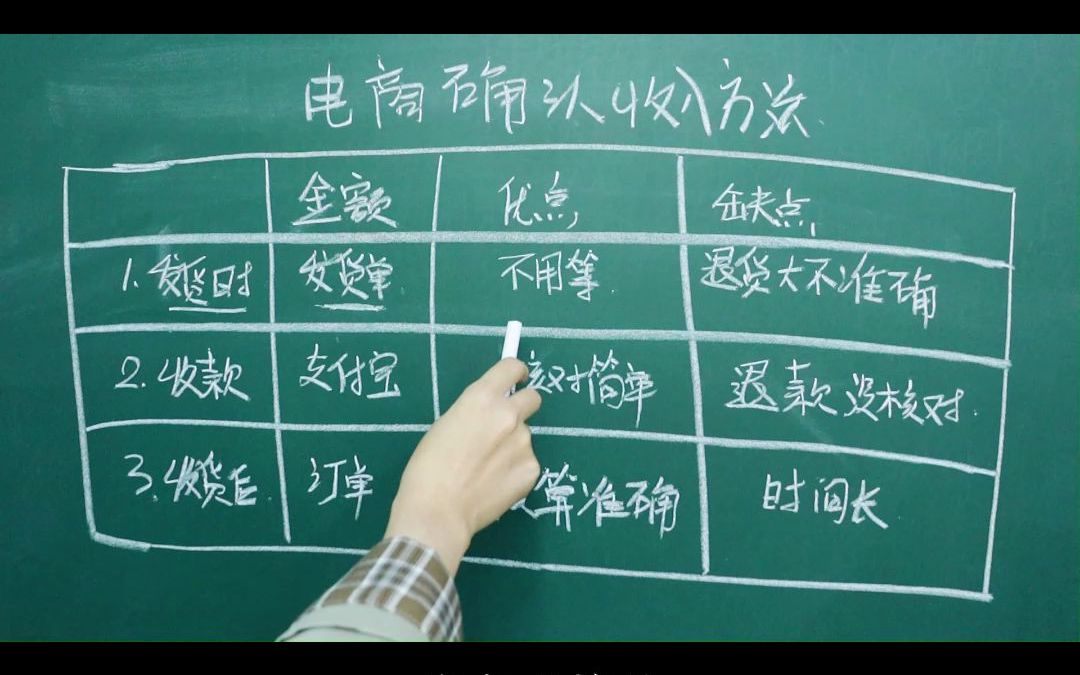 电商确认收入方法
金额 优点 缺点
1.发货时 发货单 不用等 退货大不准确
2.收款 支付宝 核对简单 退款没核对.
3.收货后 订单 算准确 时间长